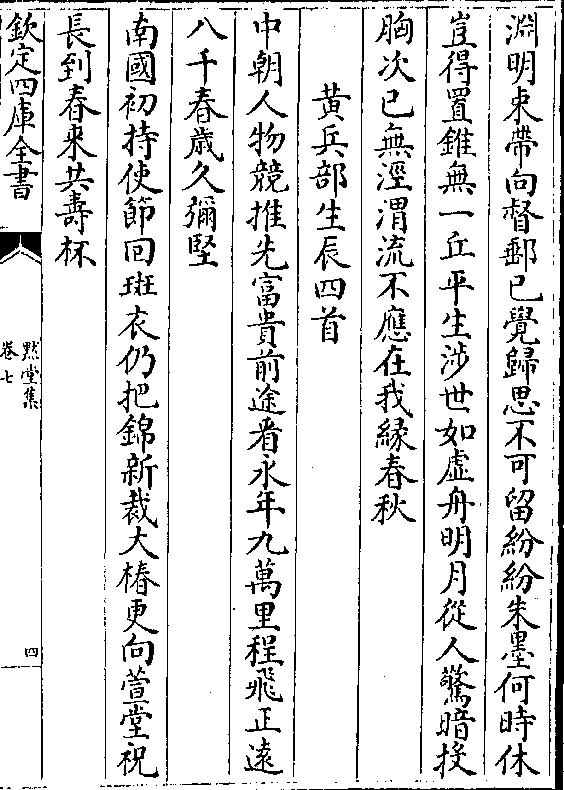 淵明束帶向督郵已覺歸思不可留紛紛朱墨何時休
豈得置錐無一丘平生涉世如虛舟明月從人驚暗投
胸次已無涇渭流不應在我緣春秋
黄兵部生辰四首
中朝人物競推先富貴前途看永年九萬里程飛正遠
八千春歲久彌堅
南國初持使節回斑衣仍把錦新裁大椿更向萱堂祝
長到春來共壽杯
欽定四庫全書
默堂集
卷七
四